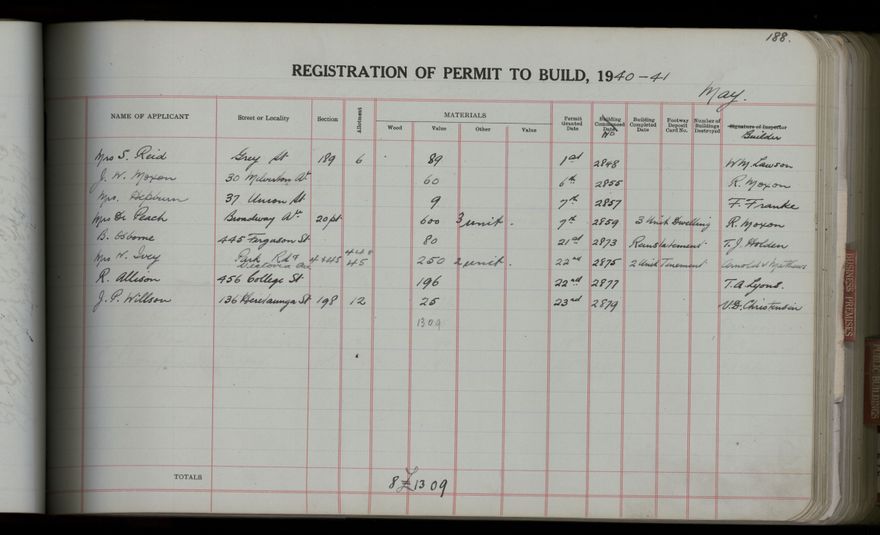 188.
REGISTRATION OF PERMIT TO BUILD, 1940-41
May.
NAME OF APPLICANT Street or Locality Section Allotment MATERIALS Permit Granted Date Building Commenced Date No Building Completed Date Footway Deposit Card No. Number of Buildings Destroyed Signature of Inspector Builder
Wood Value Other Value
Mrs S. Reid Grey St 189 6 89 1st 2848 W M. Lawson
J. W. Moxon 30 Milverton Av 60 6th 2855 R. Moxon
Mrs. Hepburn 37 Union St 9 7th 2857 F. Franke
Mrs Dr Peach Broadway Av. 20pt. 600 3 unit. 7th 2859 3 Unit Dwelling R. Moxon
B. Osborne 445 Ferguson St 80 21st 2873 Reinstatement T. J. Holden
Mrs W. Ivey Park Rd & Victoria Av 44 & 45 250 2 unit. 22nd 2875 2 Unit Tenement
R. Allison 456 College St 196 22nd 2877 T. A. Lyons.
J. P. Willson 136 Heretaunga St 198 12 25 23rd 2879 V. D. Christensen
1309
TOTALS 8 £1309
BUSINESS PREMISES
PUBLIC BUILDINGS